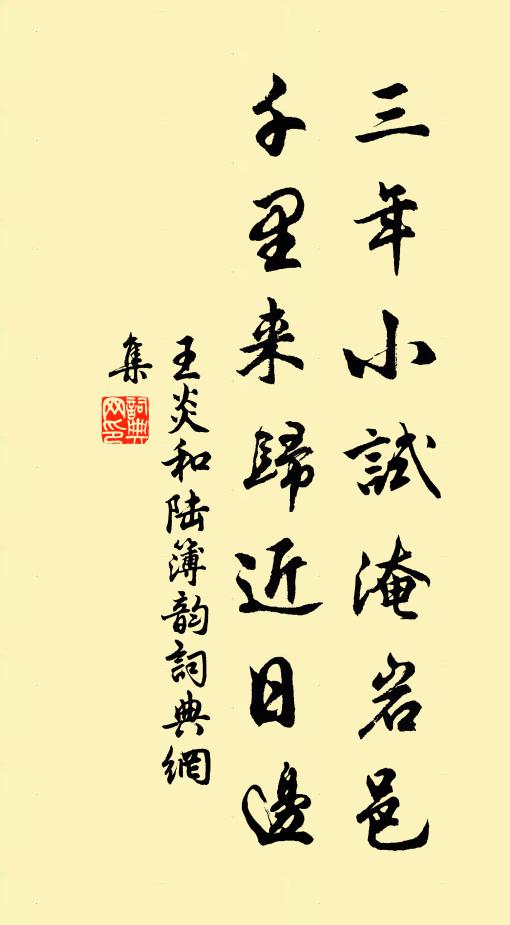 三年小試淹岩邑
千里来歸近日邊
王炎和陆簿韵詞典網
集
詞典網印